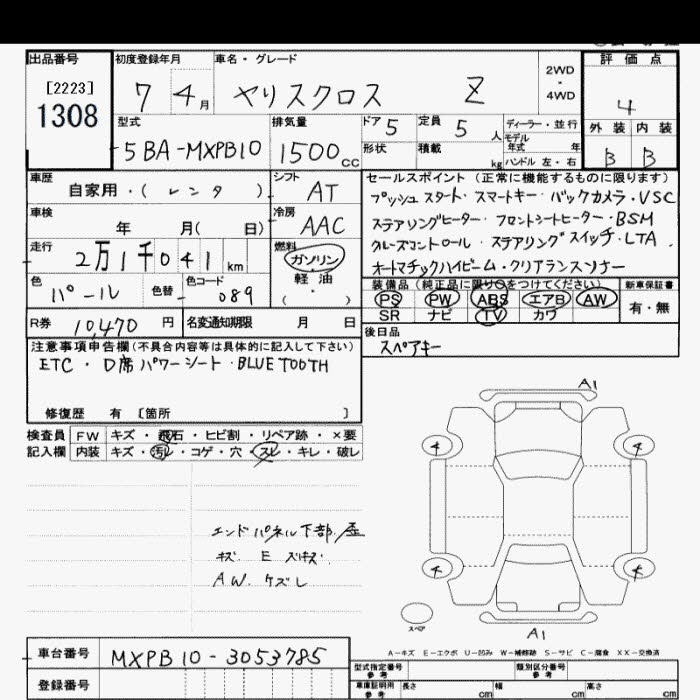 出品番号 初度登録年月 車名・グレード 2WD・4WD 評価点
[2223]
1308
7 4月 ヤリスクロス Z 4
型式 排気量 ドア 5 定員 5人 ディーラー・並行 外装 内装
5BA-MXPB10 1500cc 形状 積載 kg モデル年式 年 ハンドル 左・右 B B
車歴 自家用・( レンタ ) シフト AT
車検 年 月( 日) 冷房 AAC
走行 2万1千041km 燃料 ガソリン・軽油・( )
色 パール 色替 色コード 089
R券 10,470円 名変通知期限 月 日
セールスポイント (正常に機能するものに限ります)
プッシュスタート・スマートキー・バックカメラ・VSC
ステアリングヒーター・フロントシートヒーター・BSM
クルーズコントロール・ステアリングスイッチ・LTA
オートマチックハイビーム・クリアランスソナー
装備品 (純正品に限り○をつけてください) 新車保証書
PS PW ABS エアB AW 有・無
SR ナビ TV カワ
後日品
スペアキー
注意事項申告欄(不具合内容等は具体的に記入して下さい)
ETC・D席パワーシート・BLUETOOTH
修復歴 有 [箇所 ]
検査員 FW キズ・飛石・ヒビ割・リペア跡・×要
記入欄 内装 キズ・汚レ・コゲ・穴・スレ・キレ・破レ
エンドパネル下部歪
キズ E ズキズ
AW ケズレ
A1
4 4
4 4
スペア
A1
A-キズ E-エクボ U-凹み W-補修跡 S-サビ C-腐食 XX-交換済
車台番号 MXPB10-3053785
登録番号
型式指定番号 参考 類別区分番号 参考
車庫証明用 参考 長さ cm 幅 cm 高さ cm